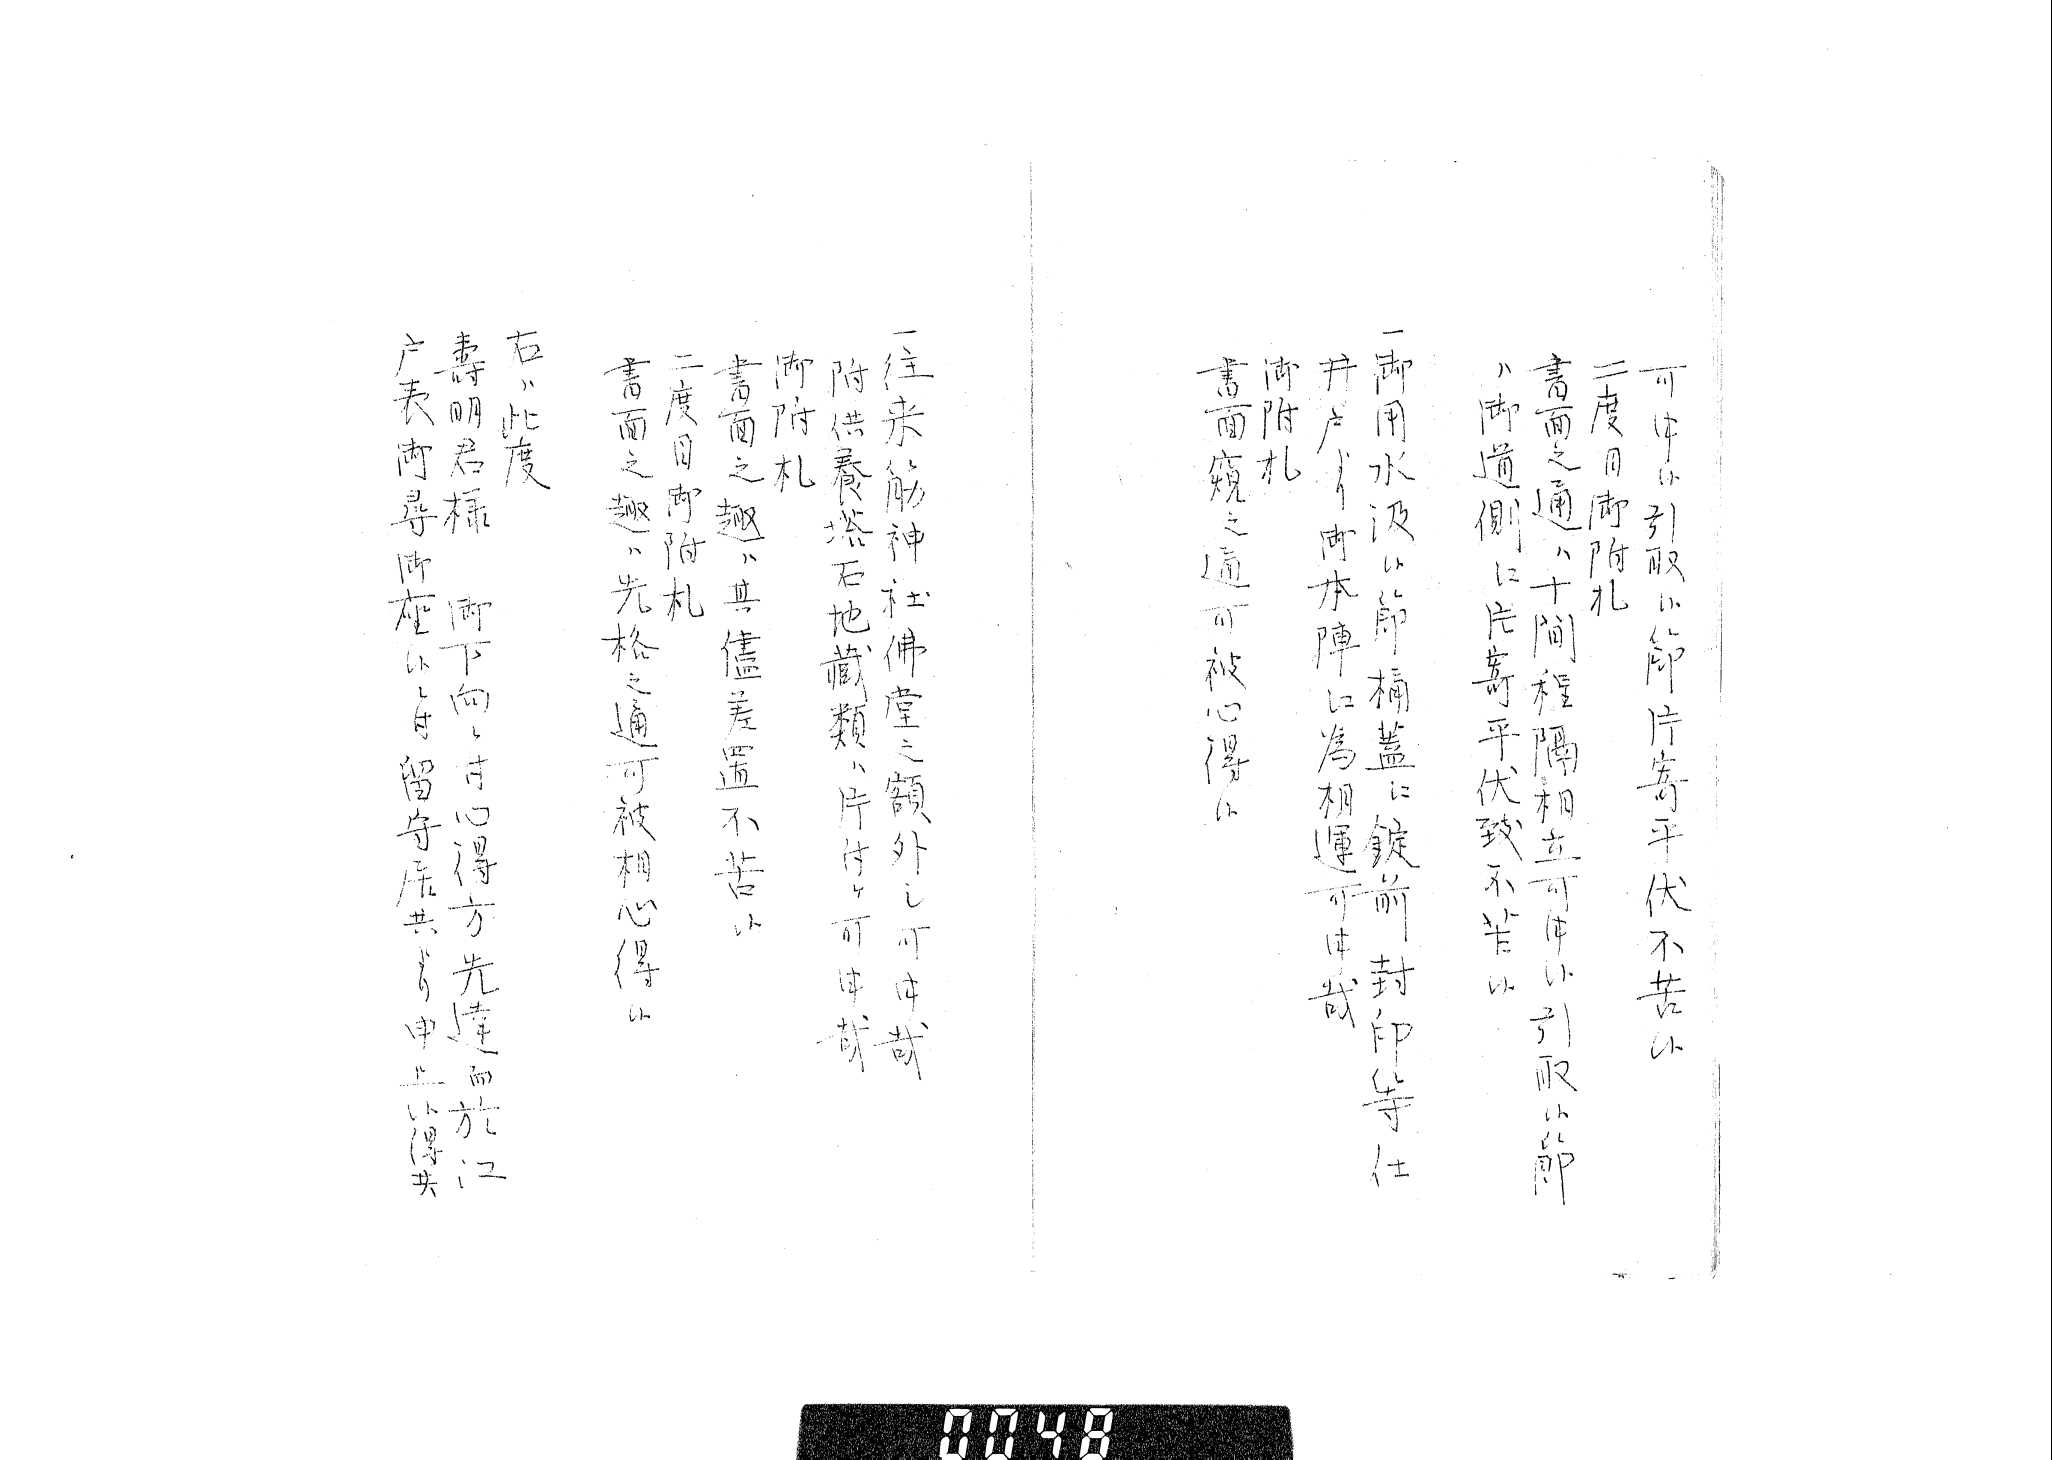 可申候引取候節片寄平伏不苦候
二度目御附札
書面之通ハ十間程隔相立可申候引取候節
ハ御道側江片寄平伏致不苦候
一御用水汲候節桶蓋江錠前封印等仕
井戸ゟ御本陣江為相運可申哉
御附札
書面窺之通可被心得候
一往来筋神社佛堂之額外し可申哉
附供養塔石地蔵類ハ片付ケ可申哉
御附札
書面之趣ハ其儘差置不苦候
二度目御附札
書面之趣ハ先格之通可被相心得候
右ハ此度
壽明君様 御下向ニ付心得方先達而於江
戸表御尋御座候ニ付留守居共ゟ申上候得共
0048